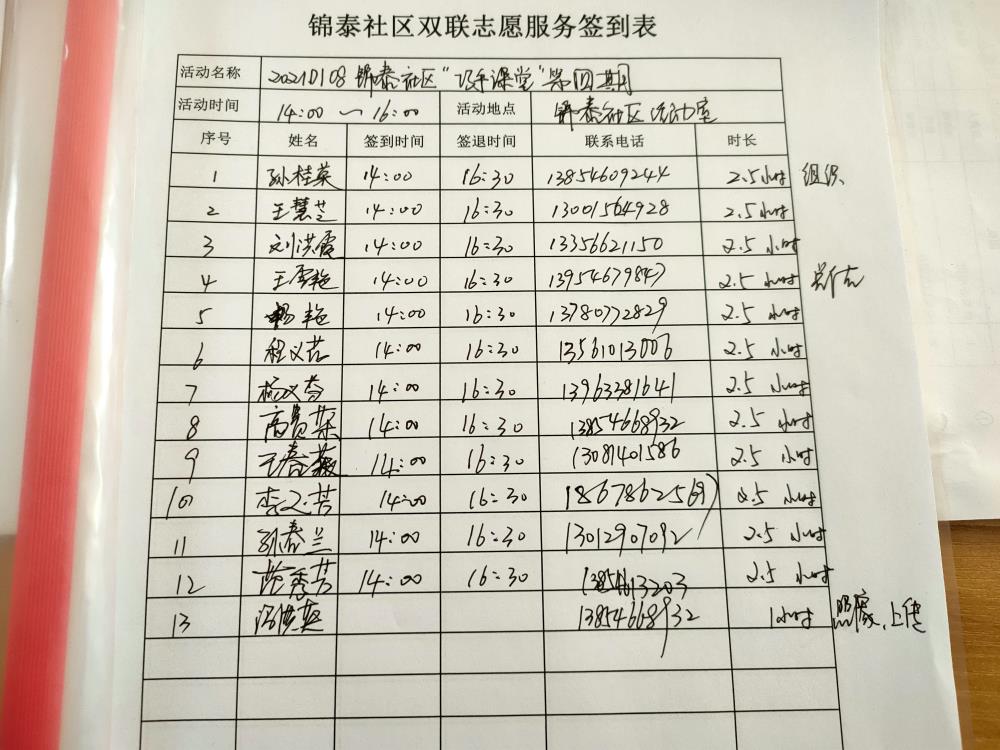 锦泰社区双联志愿服务签到表
活动名称 20210108 锦泰社区“巧手课堂”第四期
活动时间 14:00 ~ 16:00 活动地点 锦泰社区活动室
序号 姓名 签到时间 签退时间 联系电话 时长
1 孙桂英 14:00 16:30 13854609244 2.5小时 组织
2 王慧芝 14:00 16:30 13001564928 2.5小时
3 刘洪霞 14:00 16:30 13356621150 2.5小时
4 王雪艳 14:00 16:30 13954679847 2.5小时
5 杨艳 14:00 16:30 13780772829 2.5小时
6 程义芹 14:00 16:30 13561013006 2.5小时
7 14:00 16:30 13963381641 2.5小时
8 高贵荣 14:00 16:30 13854668932 2.5小时
9 王春薇 14:00 16:30 13081401586 2.5小时
10 李文芳 14:00 16:30 18678625697 2.5小时
11 孙春兰 14:00 16:30 13012907092 2.5小时
12 范秀芳 14:00 16:30 2.5小时
13 13854668932 1小时 照像、上传